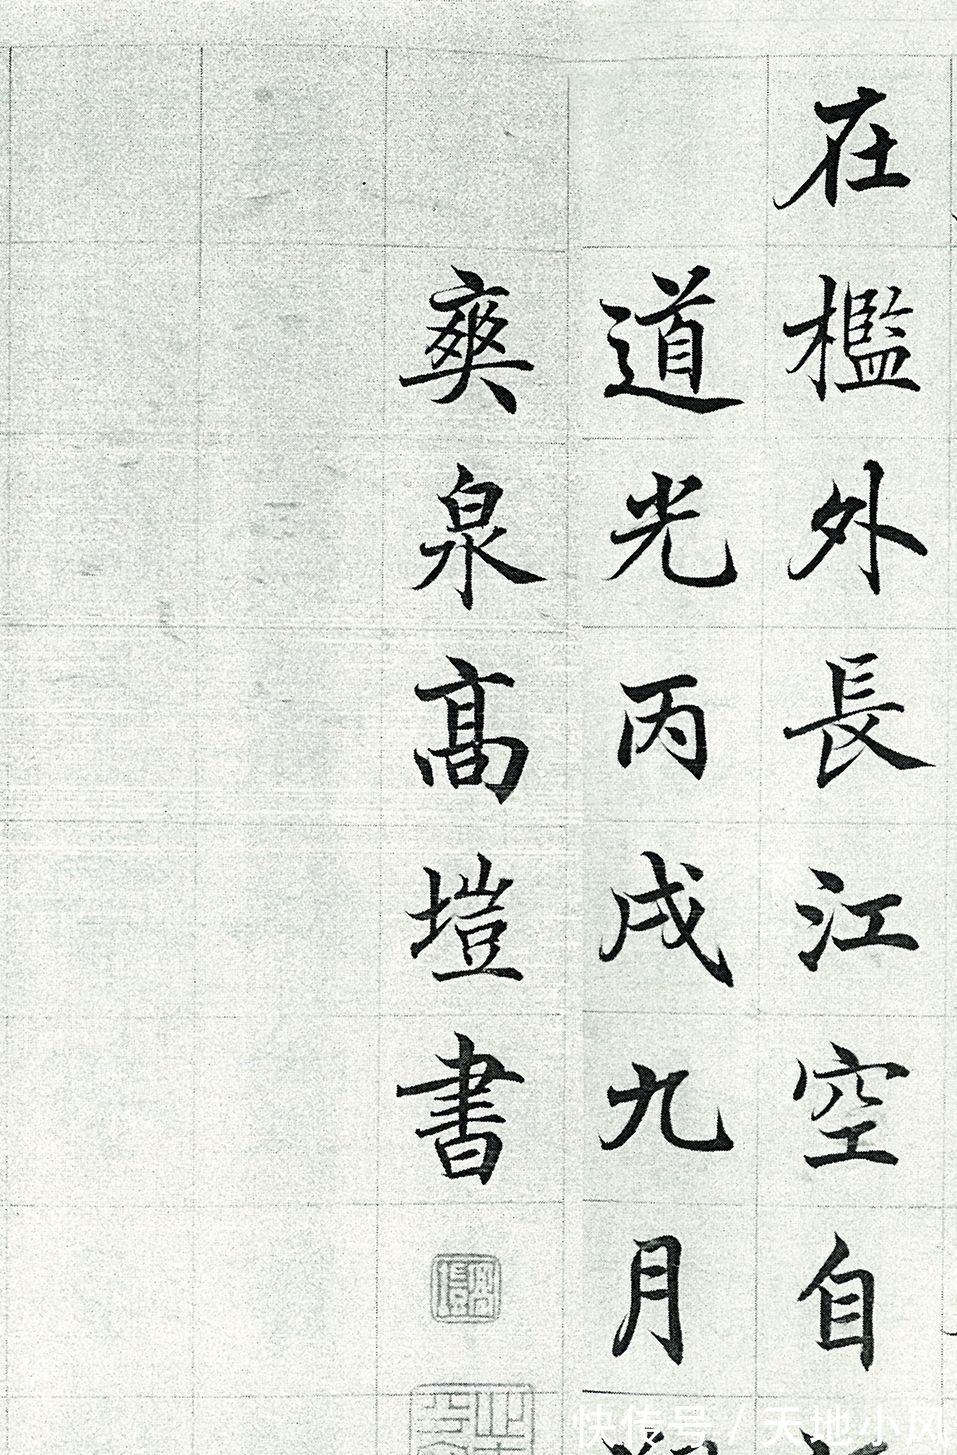 在檻外長江空自
道光丙戌九月
爽泉高塏書
快传号 / 天地小风